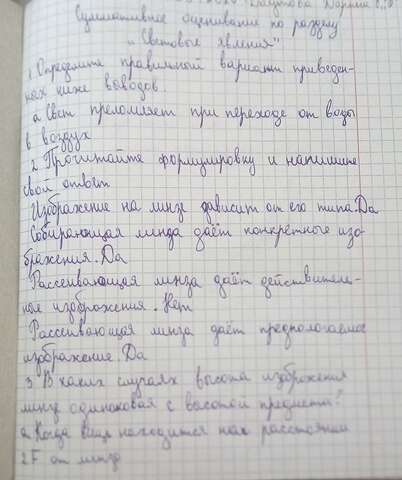 Суммативное оценивание по разделу
„Световые явления"
1. Определите правильный вариант приведен-
ных ниже выводов
а Свет преломляет при переходе от воды
в воздух
2. Прочитайте формулировку и напишите
свой ответ
Изображение на линзе зависит от его типа. Да
Собирающая линза даёт конкретные изо-
бражения. Да
Рассеивающая линза даёт действитель-
ные изображения. Нет
Рассеивающая линза даёт предпологаемое
изображение. Да
3 В каких случаях высота изображения
линзе одинаковая с высотой предмета?
а Когда вещь находится на расстоянии
2F от линз